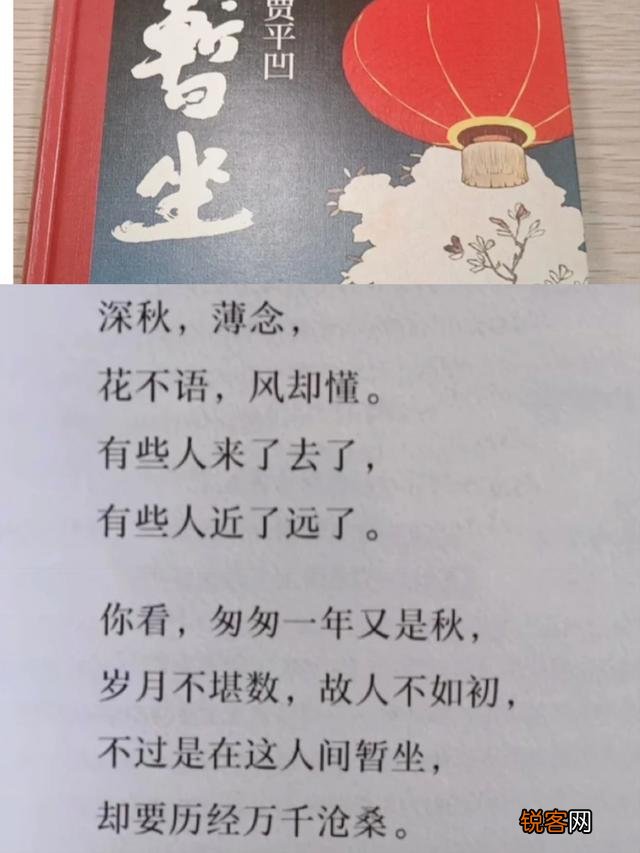 暂坐
贾平凹
深秋，薄念，
花不语，风却懂。
有些人来了去了，
有些人近了远了。
你看，匆匆一年又是秋，
岁月不堪数，故人不如初，
不过是在这人间暂坐，
却要历经万千沧桑。
锐客网